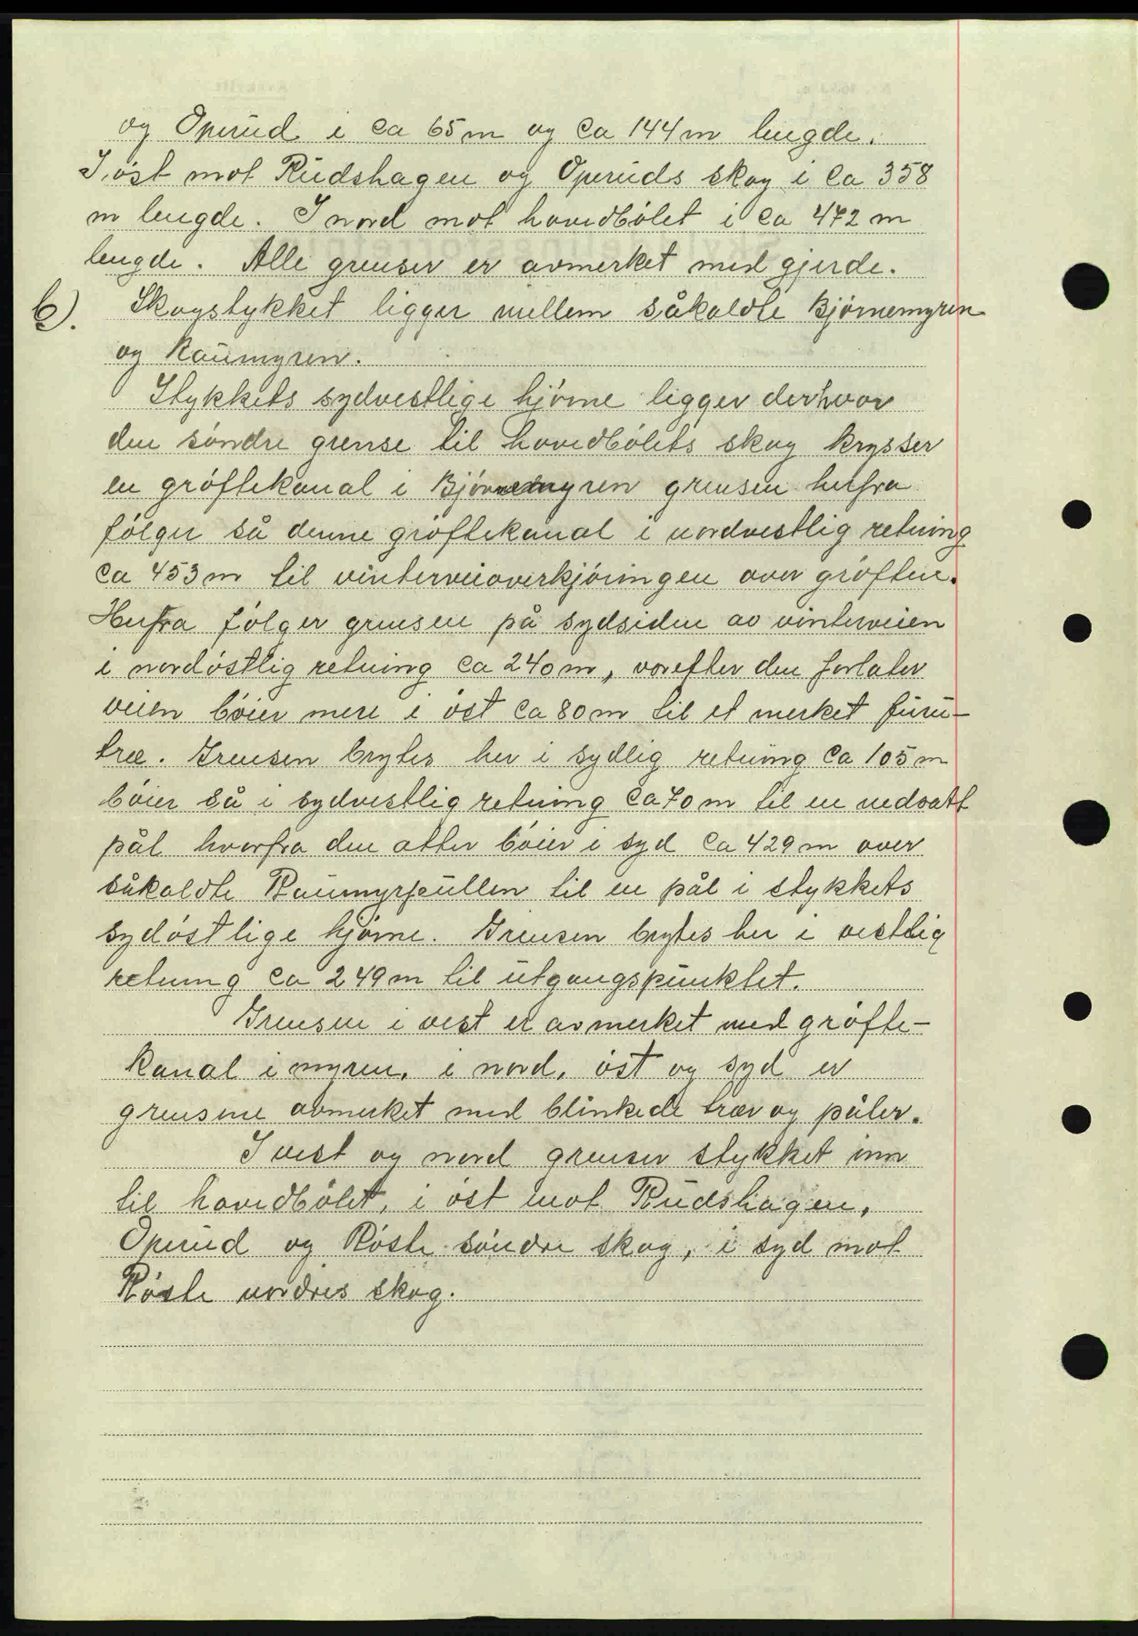 og Operud i ca 65 m og ca 144 m lengde.
I øst mot Rudshagen og Operuds skog i ca 358
m lengde. I nord mot hovedbølet i ca 472 m
lengde. Alle grenser er avmerket med gjerde.
b). Skogstykket ligger mellem såkaldte Bjørnemyren
og Raumyren.
Stykkets sydvestlige hjørne ligger der hvor
den søndre grense til hovedbølets skog krysser
en grøftekanal i Bjørnemyren grensen herfra
følger så denne grøftekanal i nordvestlig retning
ca 453 m til vinterveioverkjøringen over grøften.
Herfra følger grensen på sydsiden av vinterveien
i nordøstlig retning ca 240 m, vorefter den forlater
veien bøier mere i øst ca 80 m til et merket furu-
tre. Grensen brytes her i sydlig retning ca 105 m
bøier så i sydvestlig retning ca 70 m til en nedsatt
pål hvorfra den atter bøier i syd ca 429 m over
såkaldte Raumyrkullen til en pål i stykkets
sydøstlige hjørne. Grensen brytes her i vestlig
retning ca 249 m til utgangspunktet.
Grensen i vest er avmerket med grøfte-
kanal i myren, i nord, øst og syd er
grensene avmerket med blinkede trær og påler.
I vest og nord grenser stykket inn
til hovedbølet, i øst mot Rudshagen,
Operud og Røste søndre skog, i syd mot
Røste nordres skog.